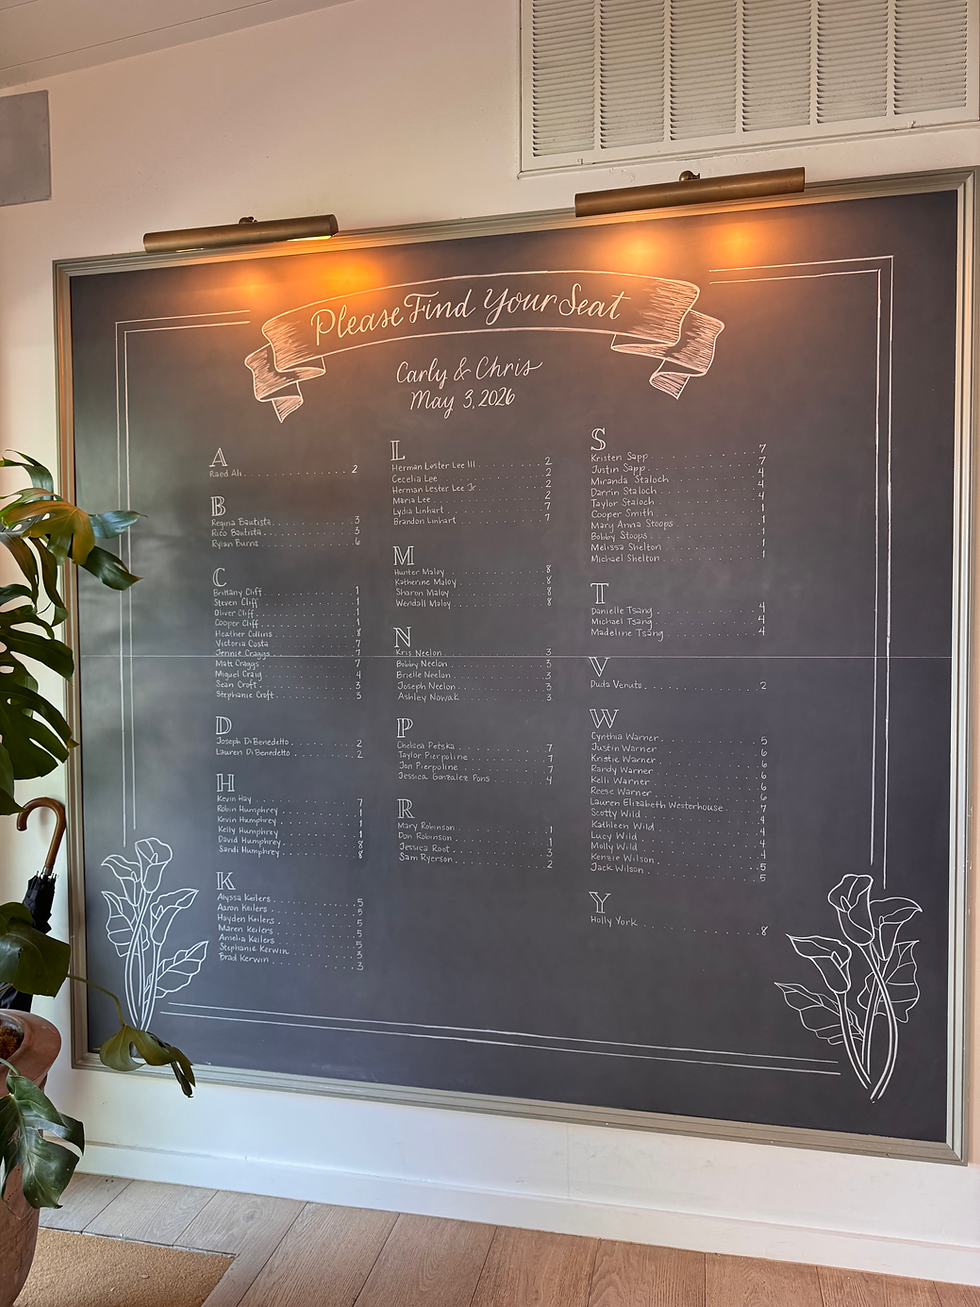 Please Find Your Seat
Carly & Chris
May 3, 2026
A
Raed Ali 2
B
Regina Bautista 3
Rico Bautista 3
Rylan Burns 6
C
Brittany Cliff 1
Steven Cliff 1
Oliver Cliff 1
Cooper Cliff 1
Heather Collins 8
Victoria Costa 7
Jennie Craggs 7
Matt Craggs 7
Miguel Craig 4
Sean Croft 3
Stephanie Croft 3
D
Joseph DiBenedetto 2
Lauren DiBenedetto 2
H
Kevin Hay 7
Robin Humphrey 1
Kevin Humphrey 1
Kelly Humphrey 1
David Humphrey 8
Sandi Humphrey 8
K
Alyssa Keilers 5
Aaron Keilers 5
Hayden Keilers 5
Maren Keilers 5
Amelia Keilers 5
Stephanie Kerwin 3
Brad Kerwin 3
L
Herman Lester Lee III 2
Cecelia Lee 2
Herman Lester Lee Jr. 2
Maria Lee 2
Lydia Linhart 7
Brandon Linhart 7
M
Hunter Maloy 8
Katherine Maloy 8
Sharon Maloy 8
Wendall Maloy 8
N
Kris Neelon 3
Bobby Neelon 3
Brielle Neelon 3
Joseph Neelon 3
Ashley Nowak 3
P
Chelsea Petska 7
Taylor Pierpoline 7
Jon Pierpoline 7
Jessica Gonzalez Pons 4
R
Mary Robinson 1
Don Robinson 1
Jessica Root 3
Sam Ryerson 2
S
Kristen Sapp 7
Justin Sapp 7
Miranda Staloch 4
Darrin Staloch 4
Taylor Staloch 4
Cooper Smith 1
Mary Anna Stoops 1
Bobby Stoops 1
Melissa Shelton 1
Michael Shelton 1
T
Danielle Tsang 4
Michael Tsang 4
Madeline Tsang 4
V
Duda Venuto 2
W
Cynthia Warner 5
Justin Warner 6
Kristie Warner 6
Randy Warner 6
Kelli Warner 6
Reese Warner 6
Lauren Elizabeth Westerhouse 7
Scotty Wild 4
Kathleen Wild 4
Lucy Wild 4
Molly Wild 4
Kenzie Wilson 5
Jack Wilson 5
Y
Holly York 8